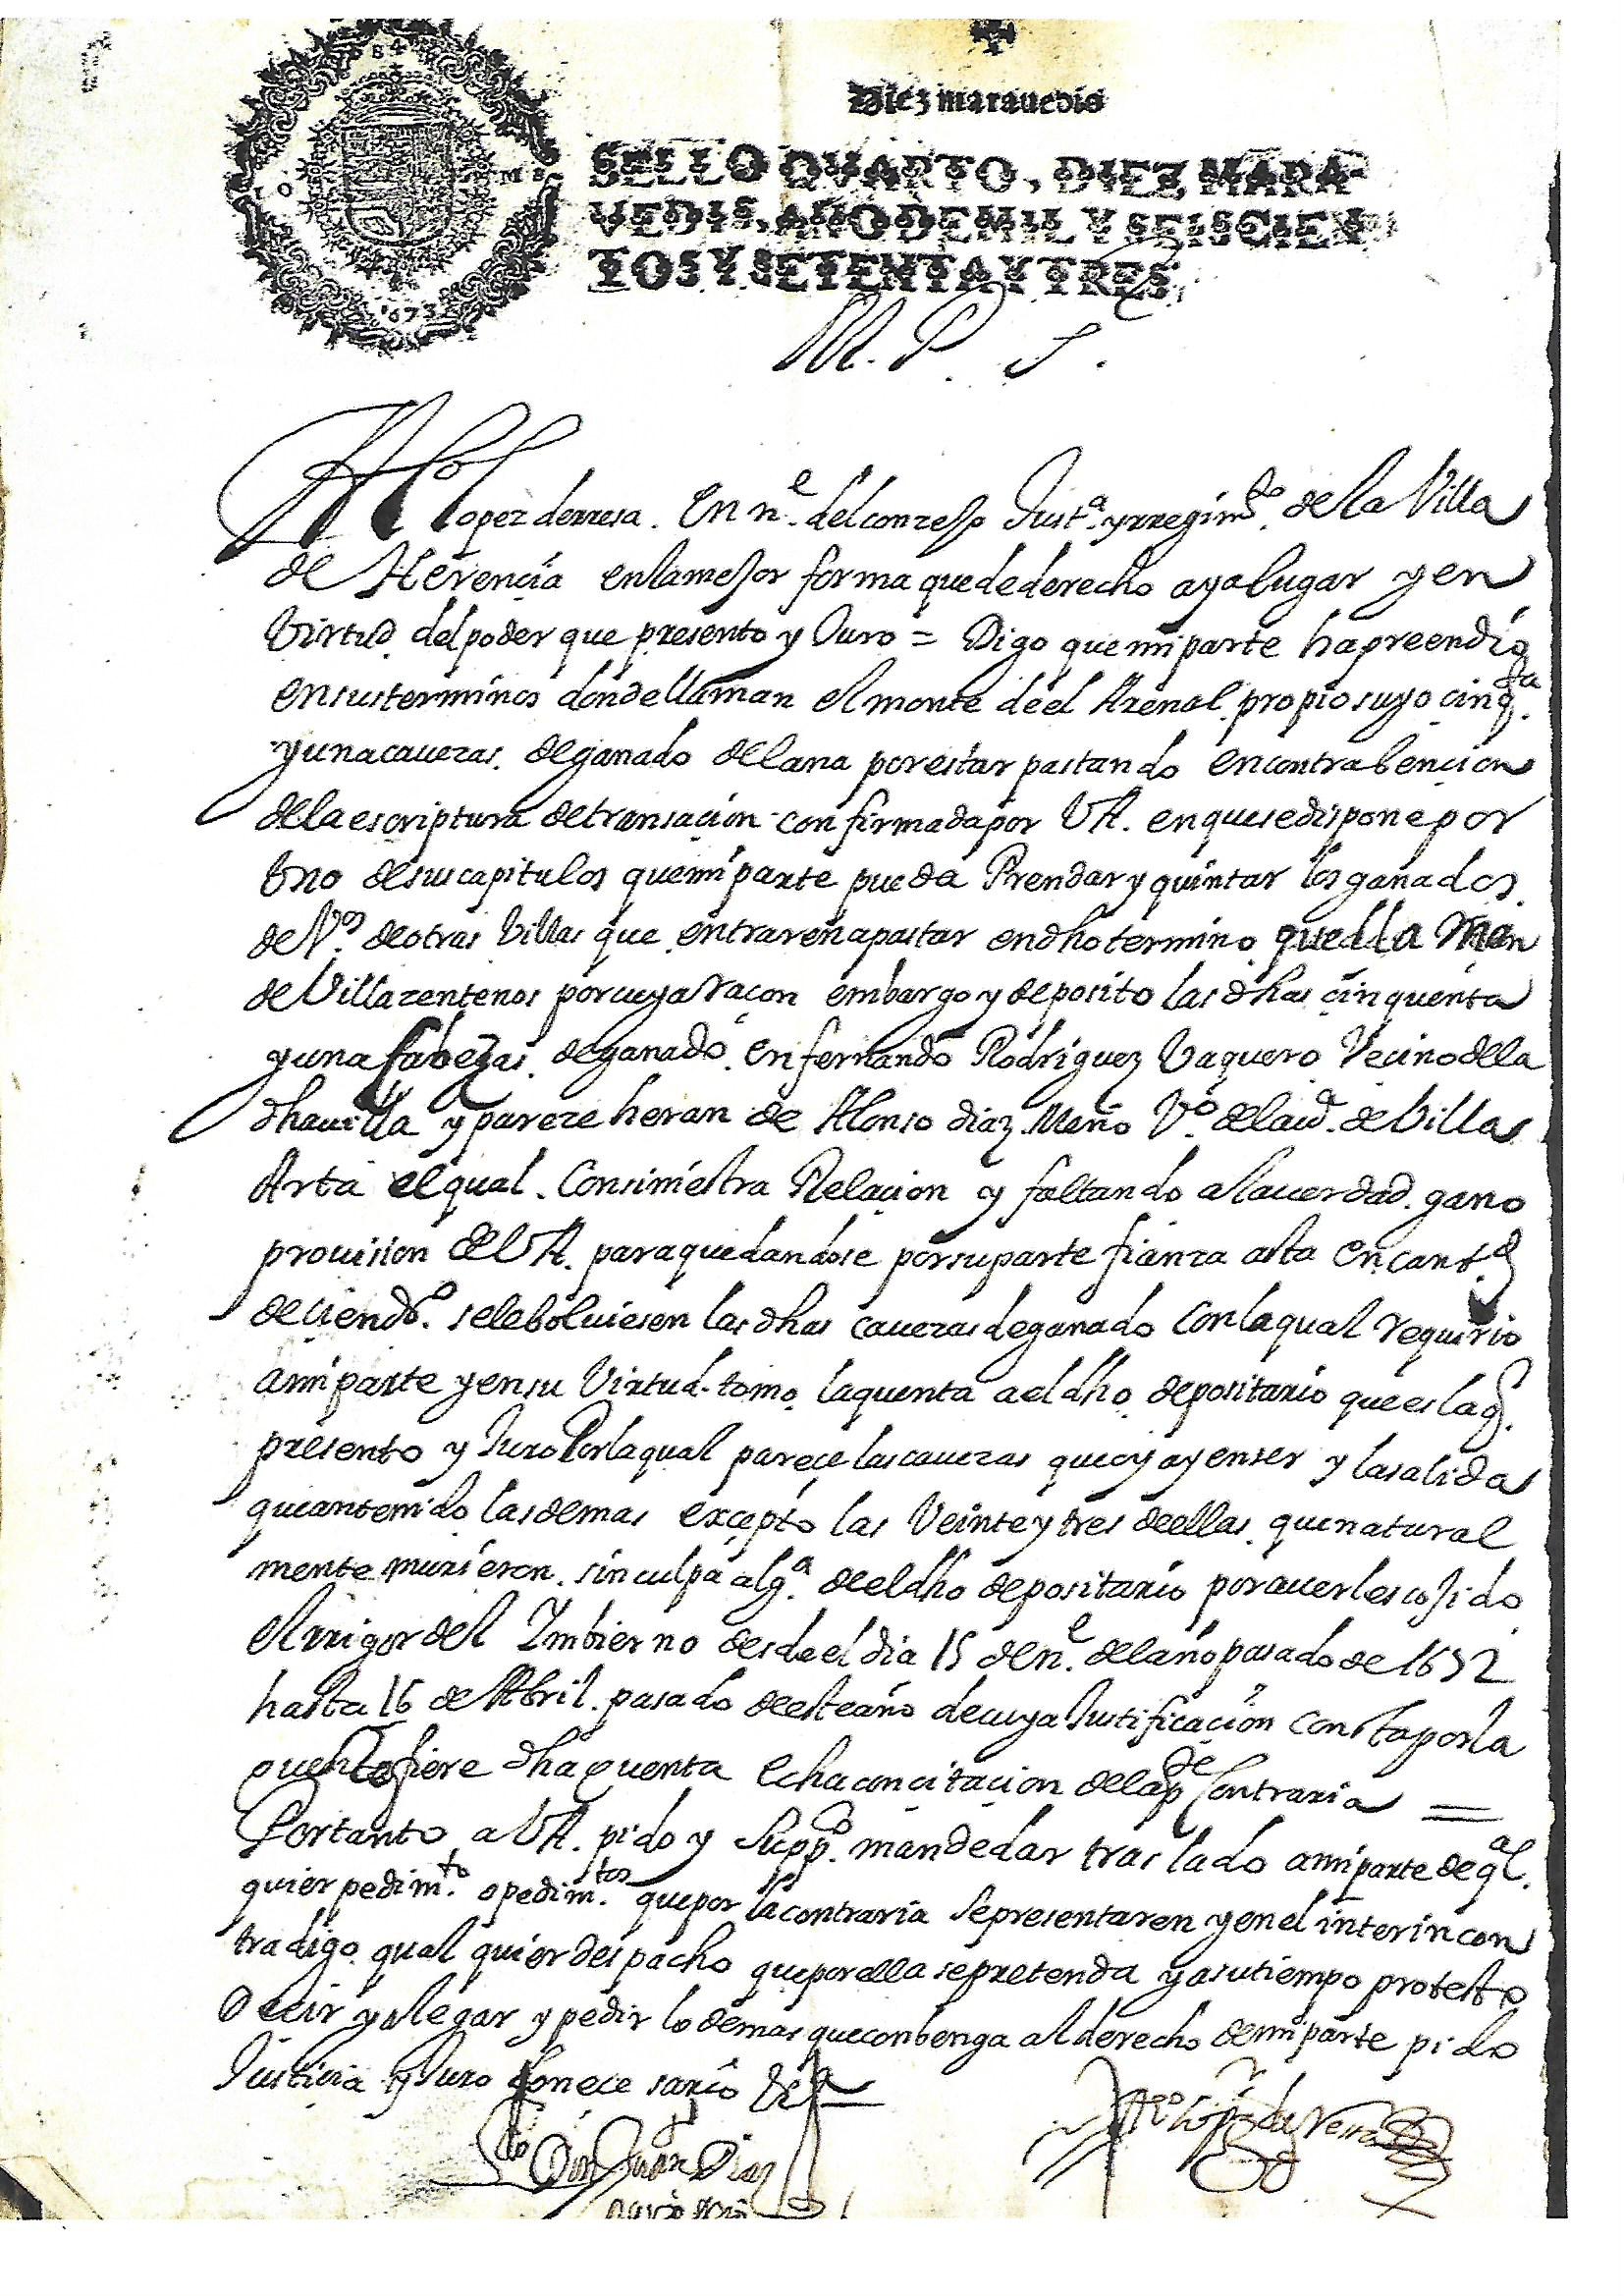 Diez marauedis
SELLO QVARTO, DIEZ MARA-
VEDIS, AÑO DE MIL Y SEISCIEN
TOS Y SETENTA Y TRES.
1673
M. P. S.
Alº lopez derresa. En nᵉ. del conzejo Justª. yrregimᵗᵒ. de la Villa
de Herencia en la mejor forma que de derecho aya lugar y en
Virtud del poder que presento y Juro = Digo que mi parte ha preendido
en sus terminos donde llaman el monte de el Arenal propio suyo cinqᵗᵃ.
y una cauezas de ganado de lana por estar pastando en contrabencion
de la escriptura de transacion confirmada por VA. en que se dispone por
Vno de sus capitulos que mi parte pueda Prendar y quintar los ganados
de Vºˢ. de otras Villas que entraren a pastar en dho termino que lla man
de Villazentenos por cuya raçon embargo y deposito las dhas cinquenta
y una cabezas de ganado en fernando Rodriguez Vaquero Vecino de lla
dha villa y pareze heran de Alonso diaz Meño Vº. de la uᵈ. de Villa
Arta el qual Con siniestra Relacion y faltando a la uerdad gano
prouision de VA. para que dandose por su parte fianza asta en cantᵈ.
de cien dºˢ. se le boluiesen las dhas cauezas de ganado Con la qual requirio
a mi parte y en su Virtud tomo la quenta a el dho depositario que es la q̃.
presento y Juro Por la qual pareçe las cauezas que oy ay en ser y la salida
que an tenido las demas excepto las Veinte y tres de ellas que natural
mente murieron sin culpa algª. de el dho depositario por auerles cojido
el rrigor del Imbierno desde el dia 15 de nᵉ. del año pasado de 1672
hasta 16 de Abril pasado de este año de cuya Justificaçion Consta por la
que refiere dha quenta echa con citacion de la pᵈᵉ Contraria =
Por tanto a VA. pido y Suppᶜᵒ. mande dar traslado a mi parte de qˡ.
quier pedimᵗᵒ. o pedimᵗᵒˢ. que por la contraria se presentaren y en el interin con
tradigo qual quier despacho que por ella se pretenda y a su tiempo protesto
Decir y alegar y pedir lo demas que conbenga al derecho de mi parte pido
Justicia y Juro lo nece sario &ᵃ
Alº lopz de Resa
Ldo Don Juan Diaz